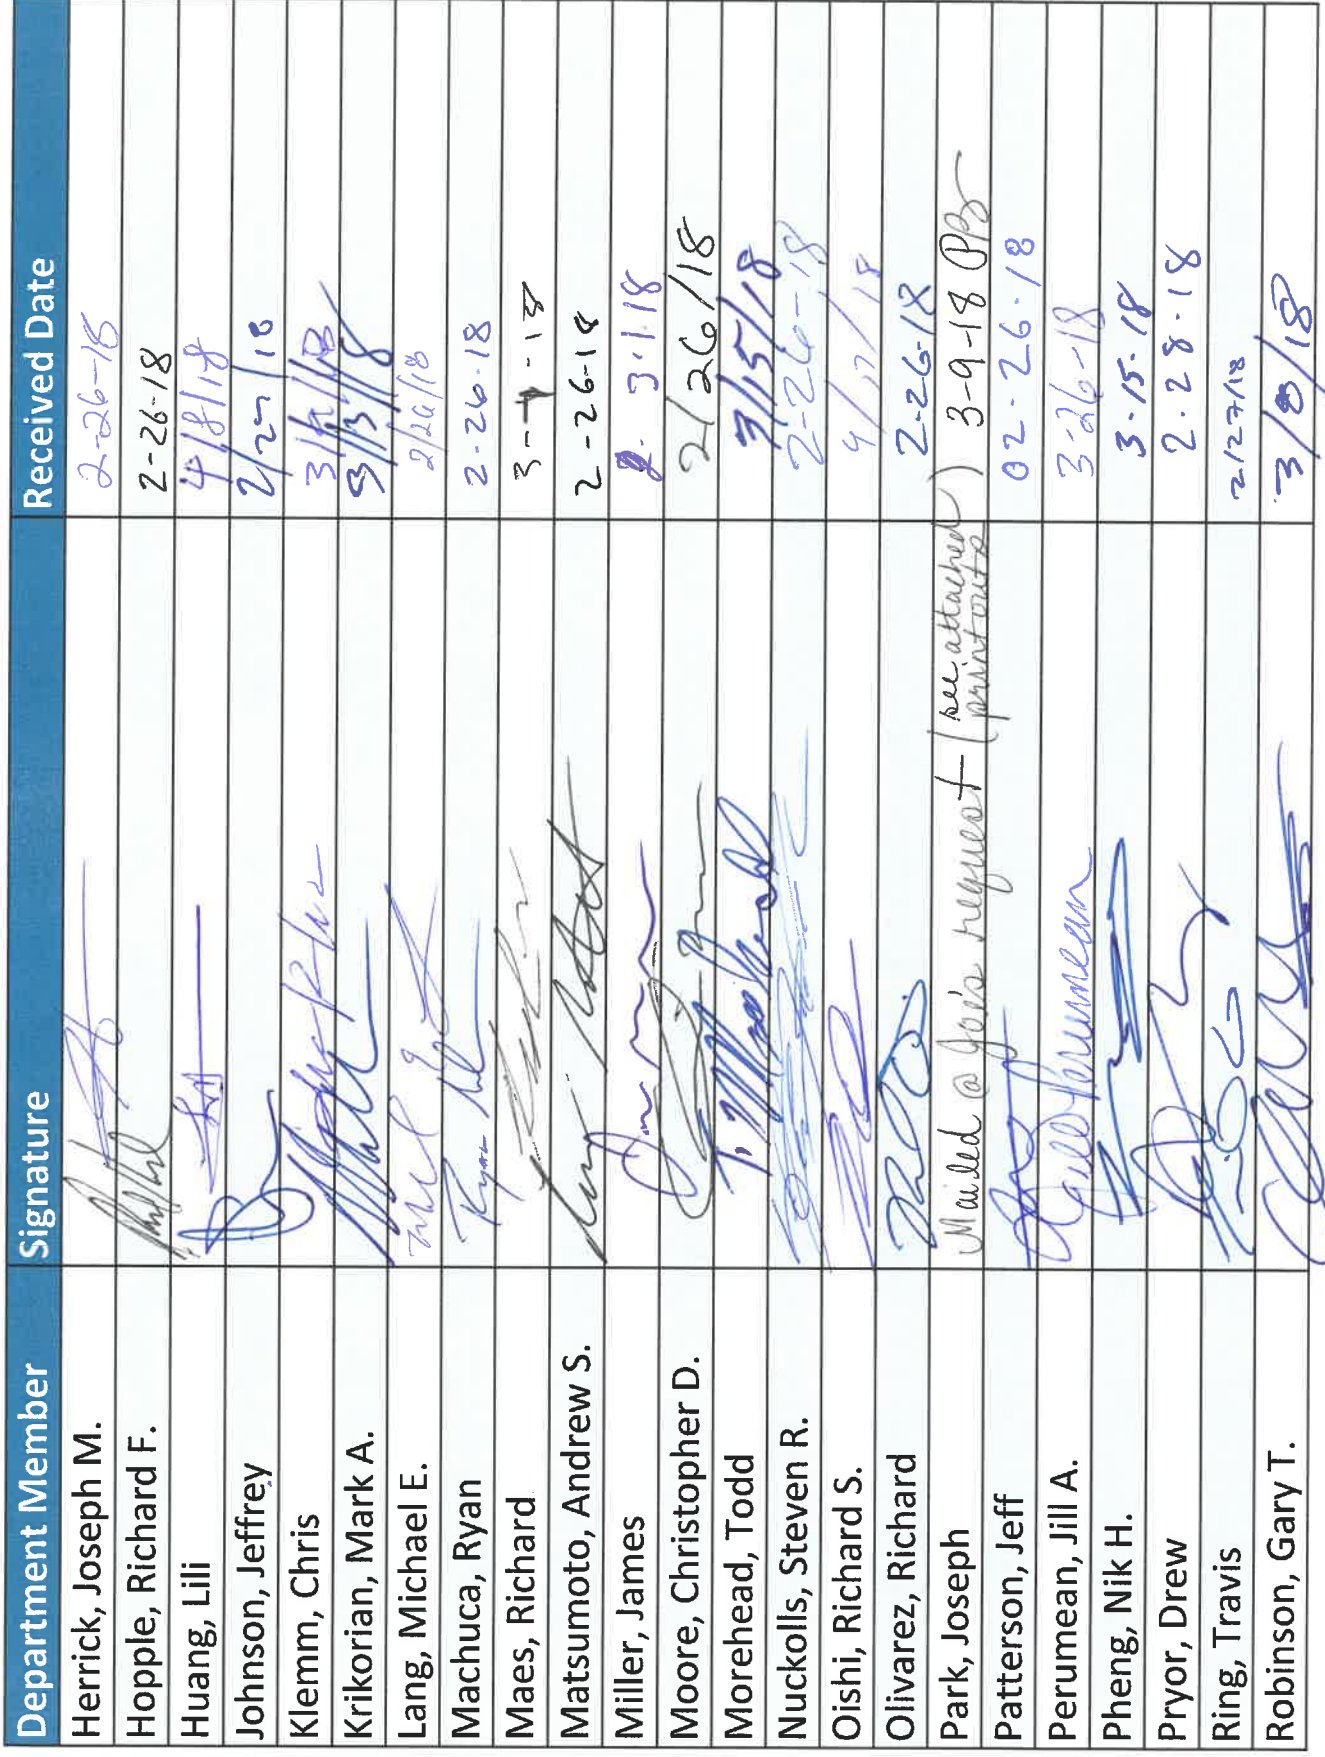 Department Member Signature Received Date
Herrick, Joseph M. 2-26-18
Hopple, Richard F. 2-26-18
Huang, Lili 4/8/18
Johnson, Jeffrey 2/27/18
Klemm, Chris
Krikorian, Mark A. 3/13/18
Lang, Michael E. 2/26/18
Machuca, Ryan 2-26-18
Maes, Richard
Matsumoto, Andrew S. 2-26-18
Miller, James 3-1-18
Moore, Christopher D. 2/26/18
Morehead, Todd T. Morehead 3/15/18
Nuckolls, Steven R. 2-26-18
Oishi, Richard S. 4/17/18
Olivarez, Richard 2-26-18
Park, Joseph Mailed @ Joe's request (see attached printouts) 3-9-18
Patterson, Jeff 02-26-18
Perumean, Jill A. Jill Perumean 3-26-18
Pheng, Nik H. 3-15-18
Pryor, Drew 2-28-18
Ring, Travis 2/27/18
Robinson, Gary T. 3/8/18